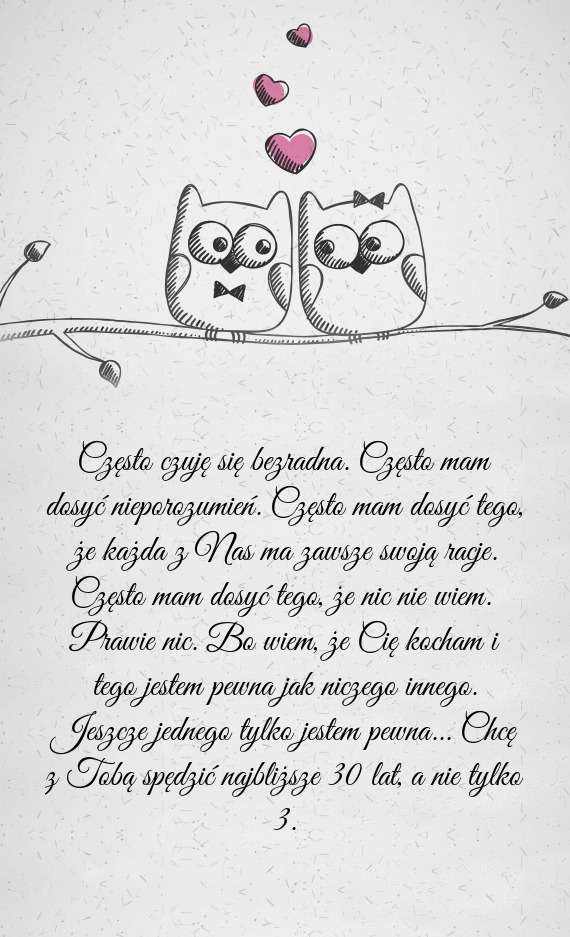 Często czuję się bezradna. Często mam
dosyć nieporozumień. Często mam dosyć tego,
że każda z Nas ma zawsze swoją racje.
Często mam dosyć tego, że nic nie wiem.
Prawie nic. Bo wiem, że Cię kocham i
tego jestem pewna jak niczego innego.
Jeszcze jednego tylko jestem pewna... Chcę
z Tobą spędzić najbliższe 30 lat, a nie tylko
3.